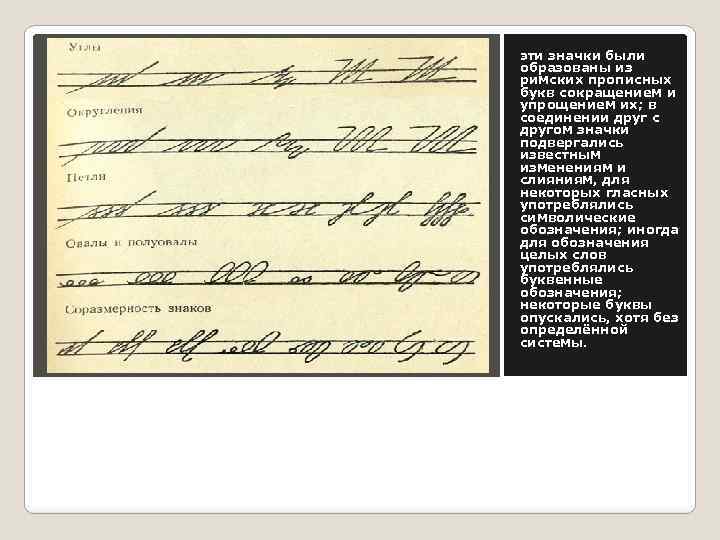 Углы
Округления
Петли
Овалы и полуовалы
Соразмерность знаков
эти значки были
образованы из
римских прописных
букв сокращением и
упрощением их; в
соединении друг с
другом значки
подвергались
известным
изменениям и
слияниям, для
некоторых гласных
употреблялись
символические
обозначения; иногда
для обозначения
целых слов
употреблялись
буквенные
обозначения;
некоторые буквы
опускались, хотя без
определённой
системы.